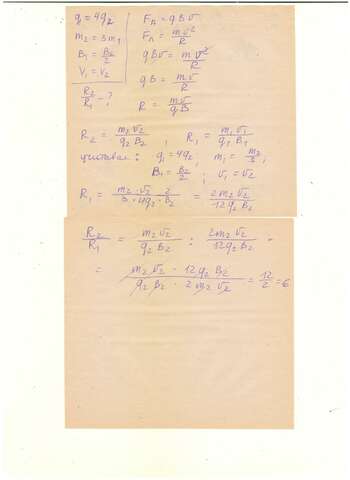 q₁ = 4q₂
m₂ = 3m₁
B₁ = B₂/2
V₁ = V₂
R₂/R₁ - ?
Fл = qBv
Fл = mv²/R
qBv = mv²/R
qB = mv/R
R = mv/qB
R₂ = m₂v₂/q₂B₂ , R₁ = m₁v₁/q₁B₁
учитывая: q₁ = 4q₂; m₁ = m₂/3;
B₁ = B₂/2 ; v₁ = v₂
R₁ = m₂·v₂·2/3·4q₂·B₂ = 2m₂v₂/12q₂B₂
R₂/R₁ = m₂v₂/q₂B₂ : 2m₂v₂/12q₂B₂ =
= m₂v₂ · 12q₂B₂/q₂B₂ · 2m₂v₂ = 12/2 = 6